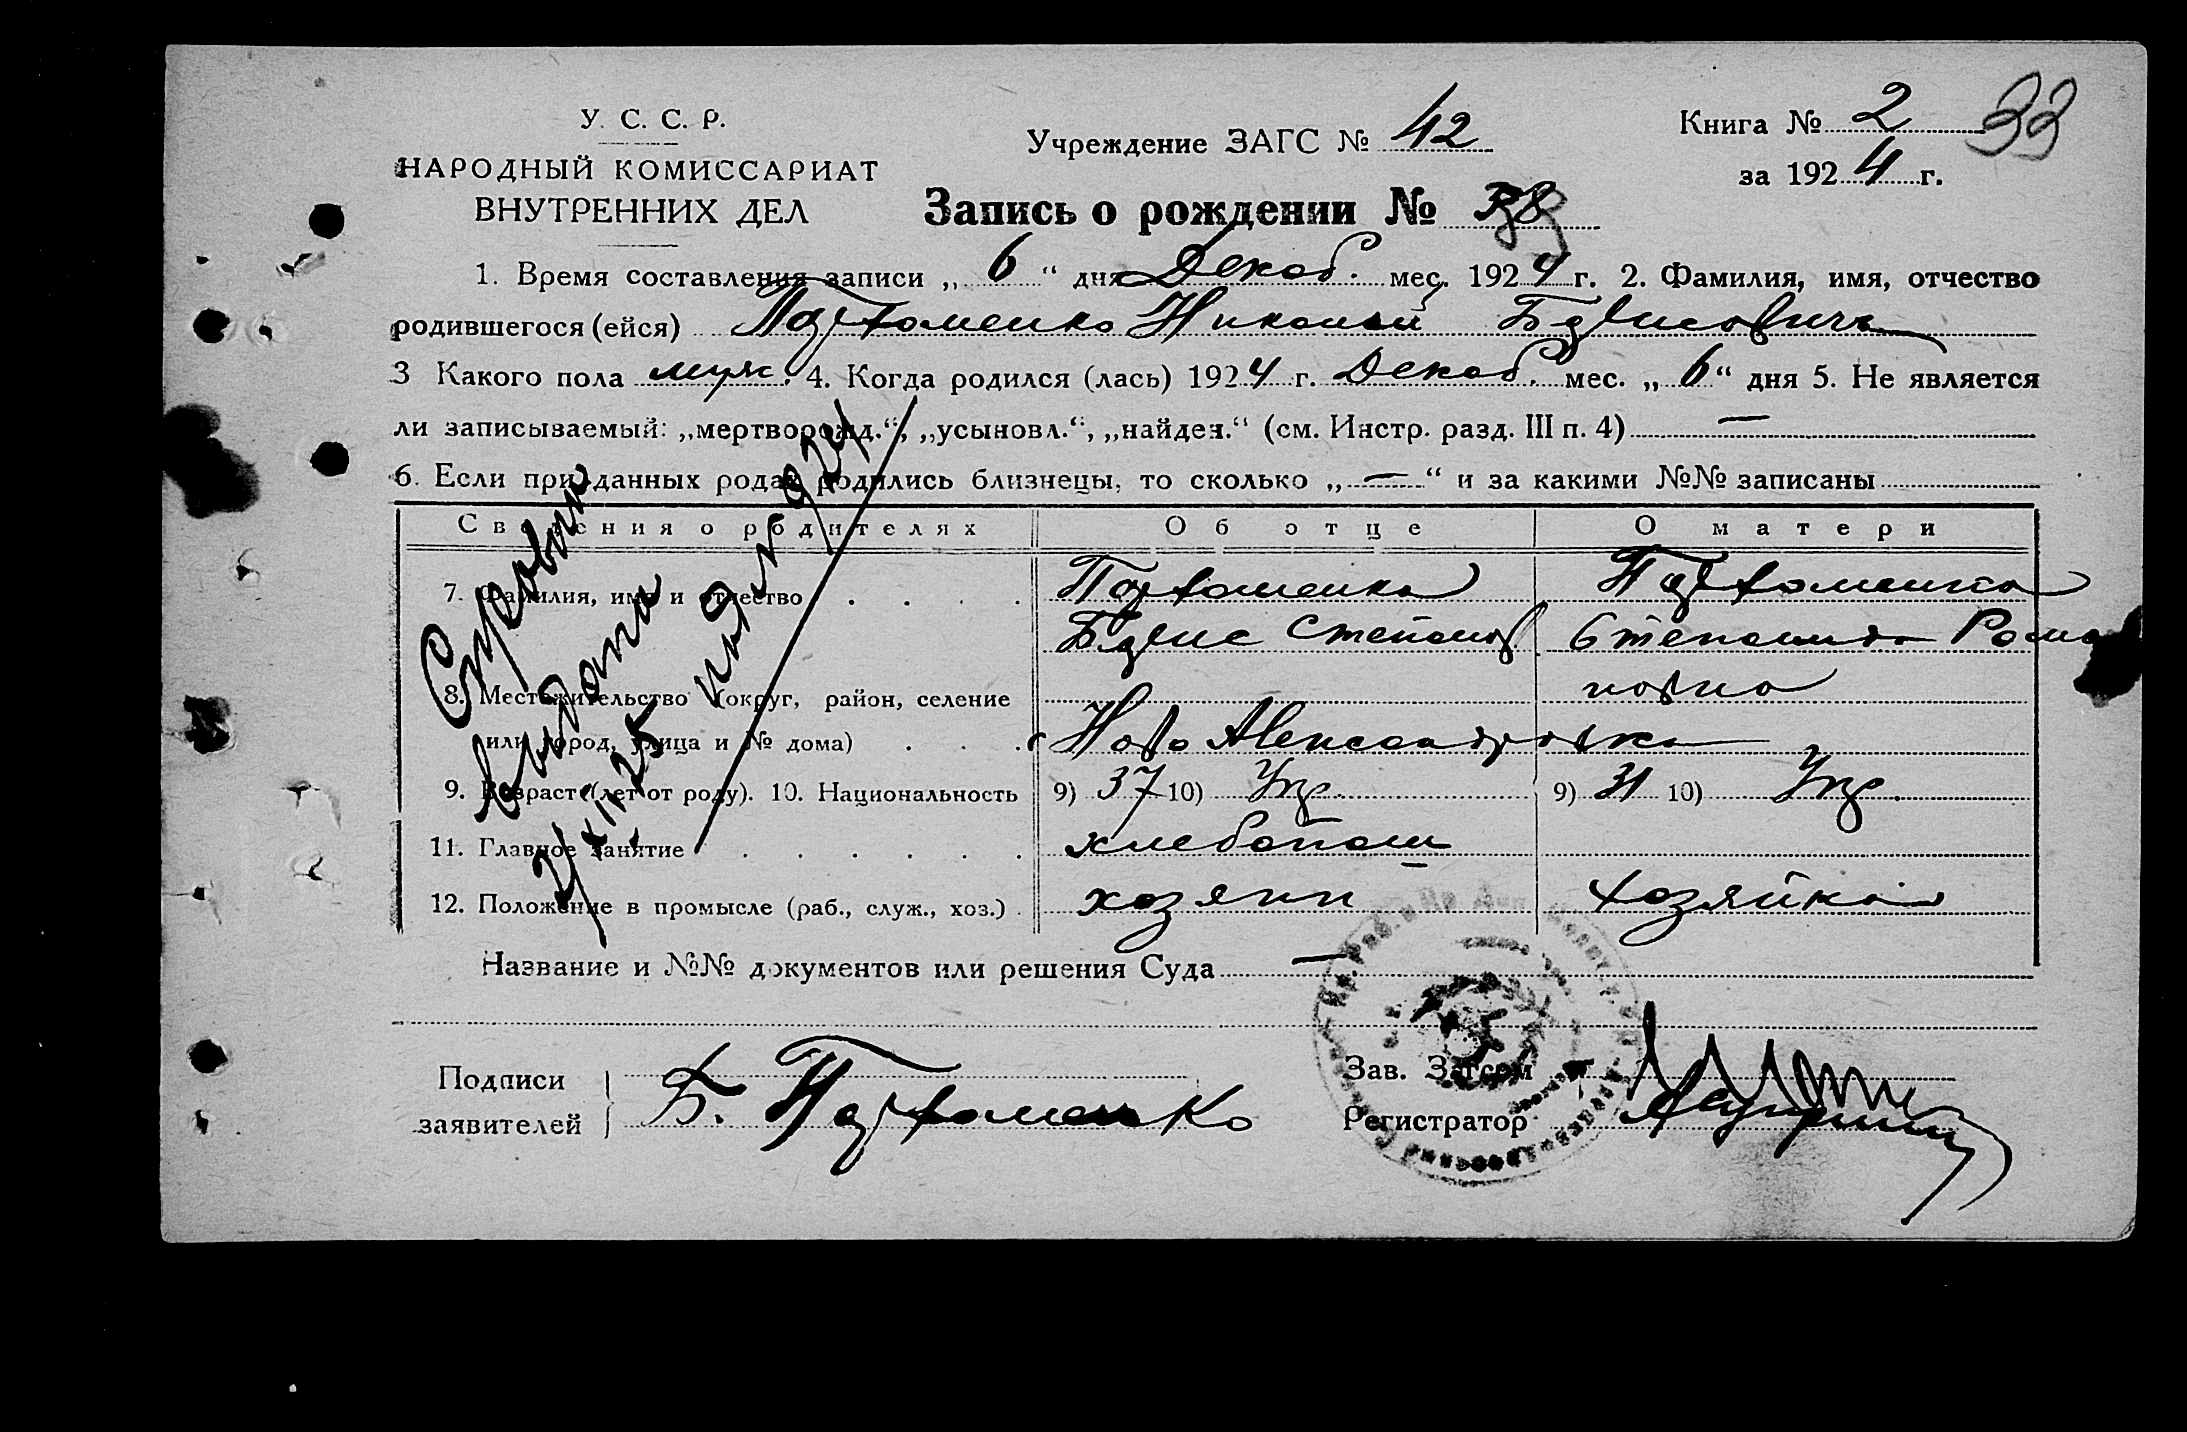 У. С. С. Р.
НАРОДНЫЙ КОМИССАРИАТ
ВНУТРЕННИХ ДЕЛ
Учреждение ЗАГС № 42
Книга № 2 33
за 1924 г.
Запись о рождении № 38
1. Время составления записи „ 6 “ дня Декаб. мес. 1924 г. 2. Фамилия, имя, отчество
родившегося (ейся) Пархоменко Николай Борисович
3 Какого пола муж. 4. Когда родился (лась) 1924 г. Декаб. мес. „ 6 “ дня 5. Не является
ли записываемый: „мертворожд.“, „усыновл.“, „найден.“ (см. Инстр. разд. III п. 4) —
6. Если при данных родах родились близнецы, то сколько „ — “ и за какими №№ записаны
Сведения о родителях Об отце О матери
7. Фамилия, имя и отчество Пархоменко Пархоменко
Борис Степанов Степанида Рома
новна
8. Местожительство (округ, район, селение
или город, улица и № дома) Ново Александровка
9. Возраст (лет от роду). 10. Национальность 9) 37 10) Укр. 9) 31 10) Укр.
11. Главное занятие хлебопаш
12. Положение в промысле (раб., служ., хоз.) хозяин хозяйка
Название и №№ документов или решения Суда —
Справка
выдана
Подписи
заявителей Б. Пархоменко
Зав. Загсом
Регистратор